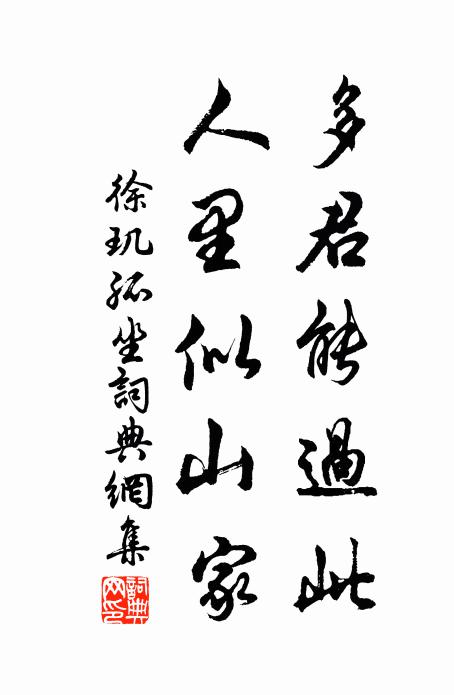 多君能過此
人里似山家
徐玑孤坐詞典網集
詞典
网印